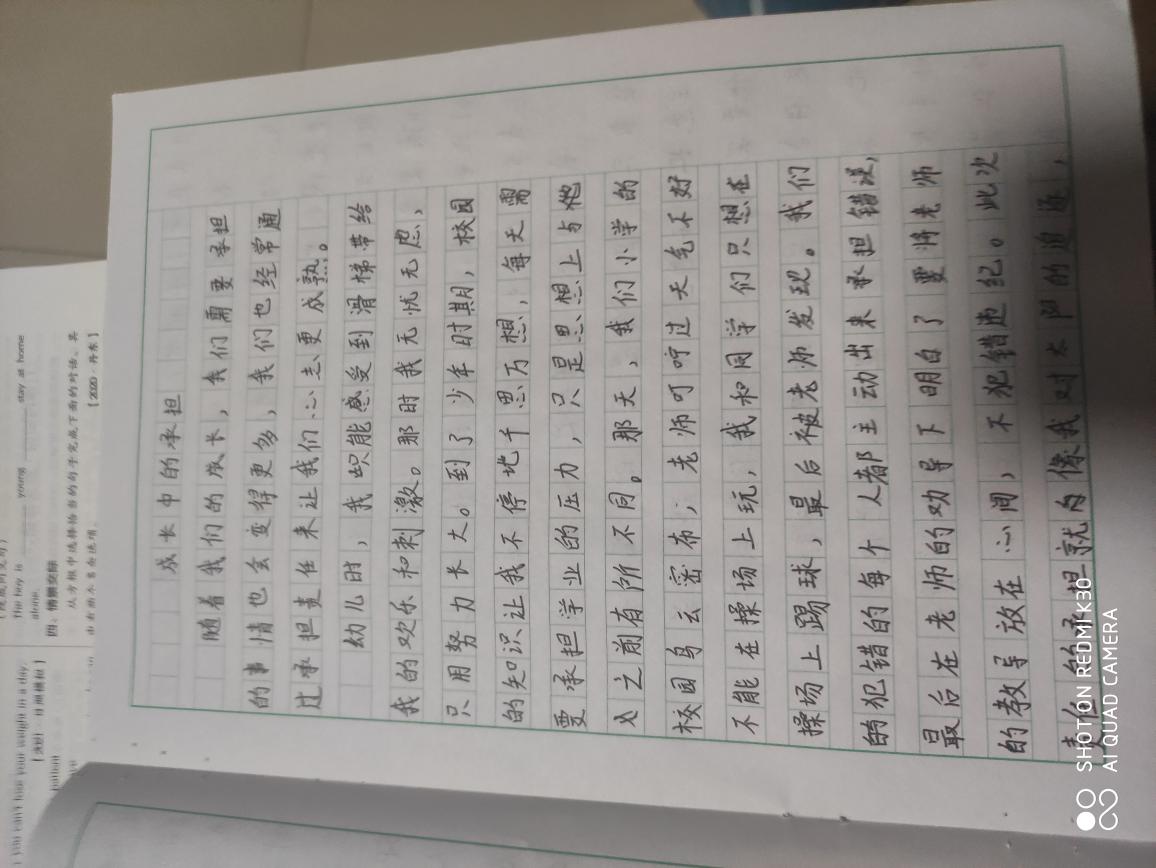 成长中的承担
随着我们的成长，我们需要承担
的事情也会变得更多，我们也经常通
过承担责任来让我们心志更成熟。
幼儿时，我只能感受到滑梯带给
我的欢乐和刺激。那时我无忧无虑，
只用努力长大。到了少年时期，校园
的知识让我不停地千思万想，每天需
要承担学业的压力，只是思想上与他
人之前有所不同。那天，我们小学的
校园乌云密布，老师叮咛过天气不好
不能在操场上玩，我和同学们只想在
操场上踢球，最后被老师发现。我们
的犯错的每个人都主动出来承担错误，
最后在老师的劝导下明白了要将老师
的教导放在心间，不犯错违纪。此次
责任的承担就为像我对太阳的追逐，
the boy is young stay at home
alone.
四、情景交际
从方框中选择恰当的句子完成下面的对话，其
[2020·丹东]
you can't lose your weight in a day.
SHOT ON REDMI K30
AI QUAD CAMERA